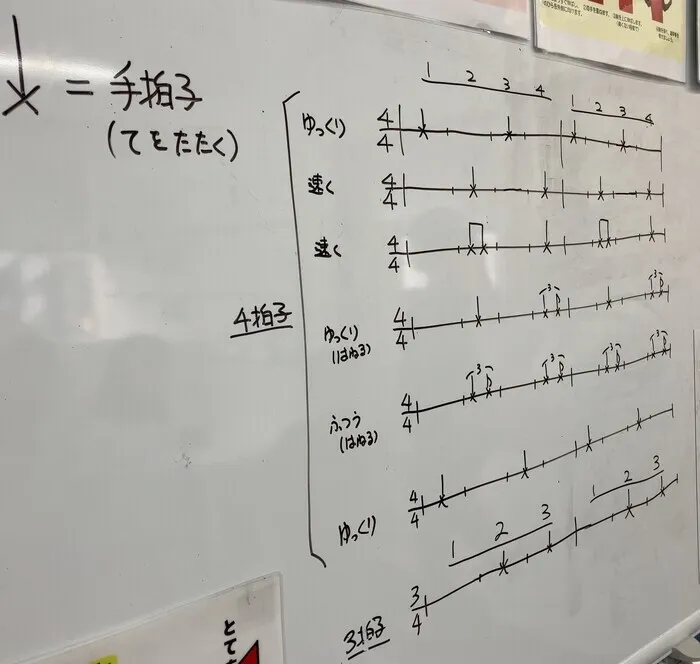 = 手拍子
(てをたたく)
1 2 3 4 1 2 3 4
ゆっくり 4/4
速く 4/4
速く 4/4
4拍子
ゆっくり 4/4 3 3
(はねる)
ふつう 4/4 3 3 3 3
(はねる)
ゆっくり 4/4
1 2 3 1 2 3
3拍子 3/4
とて